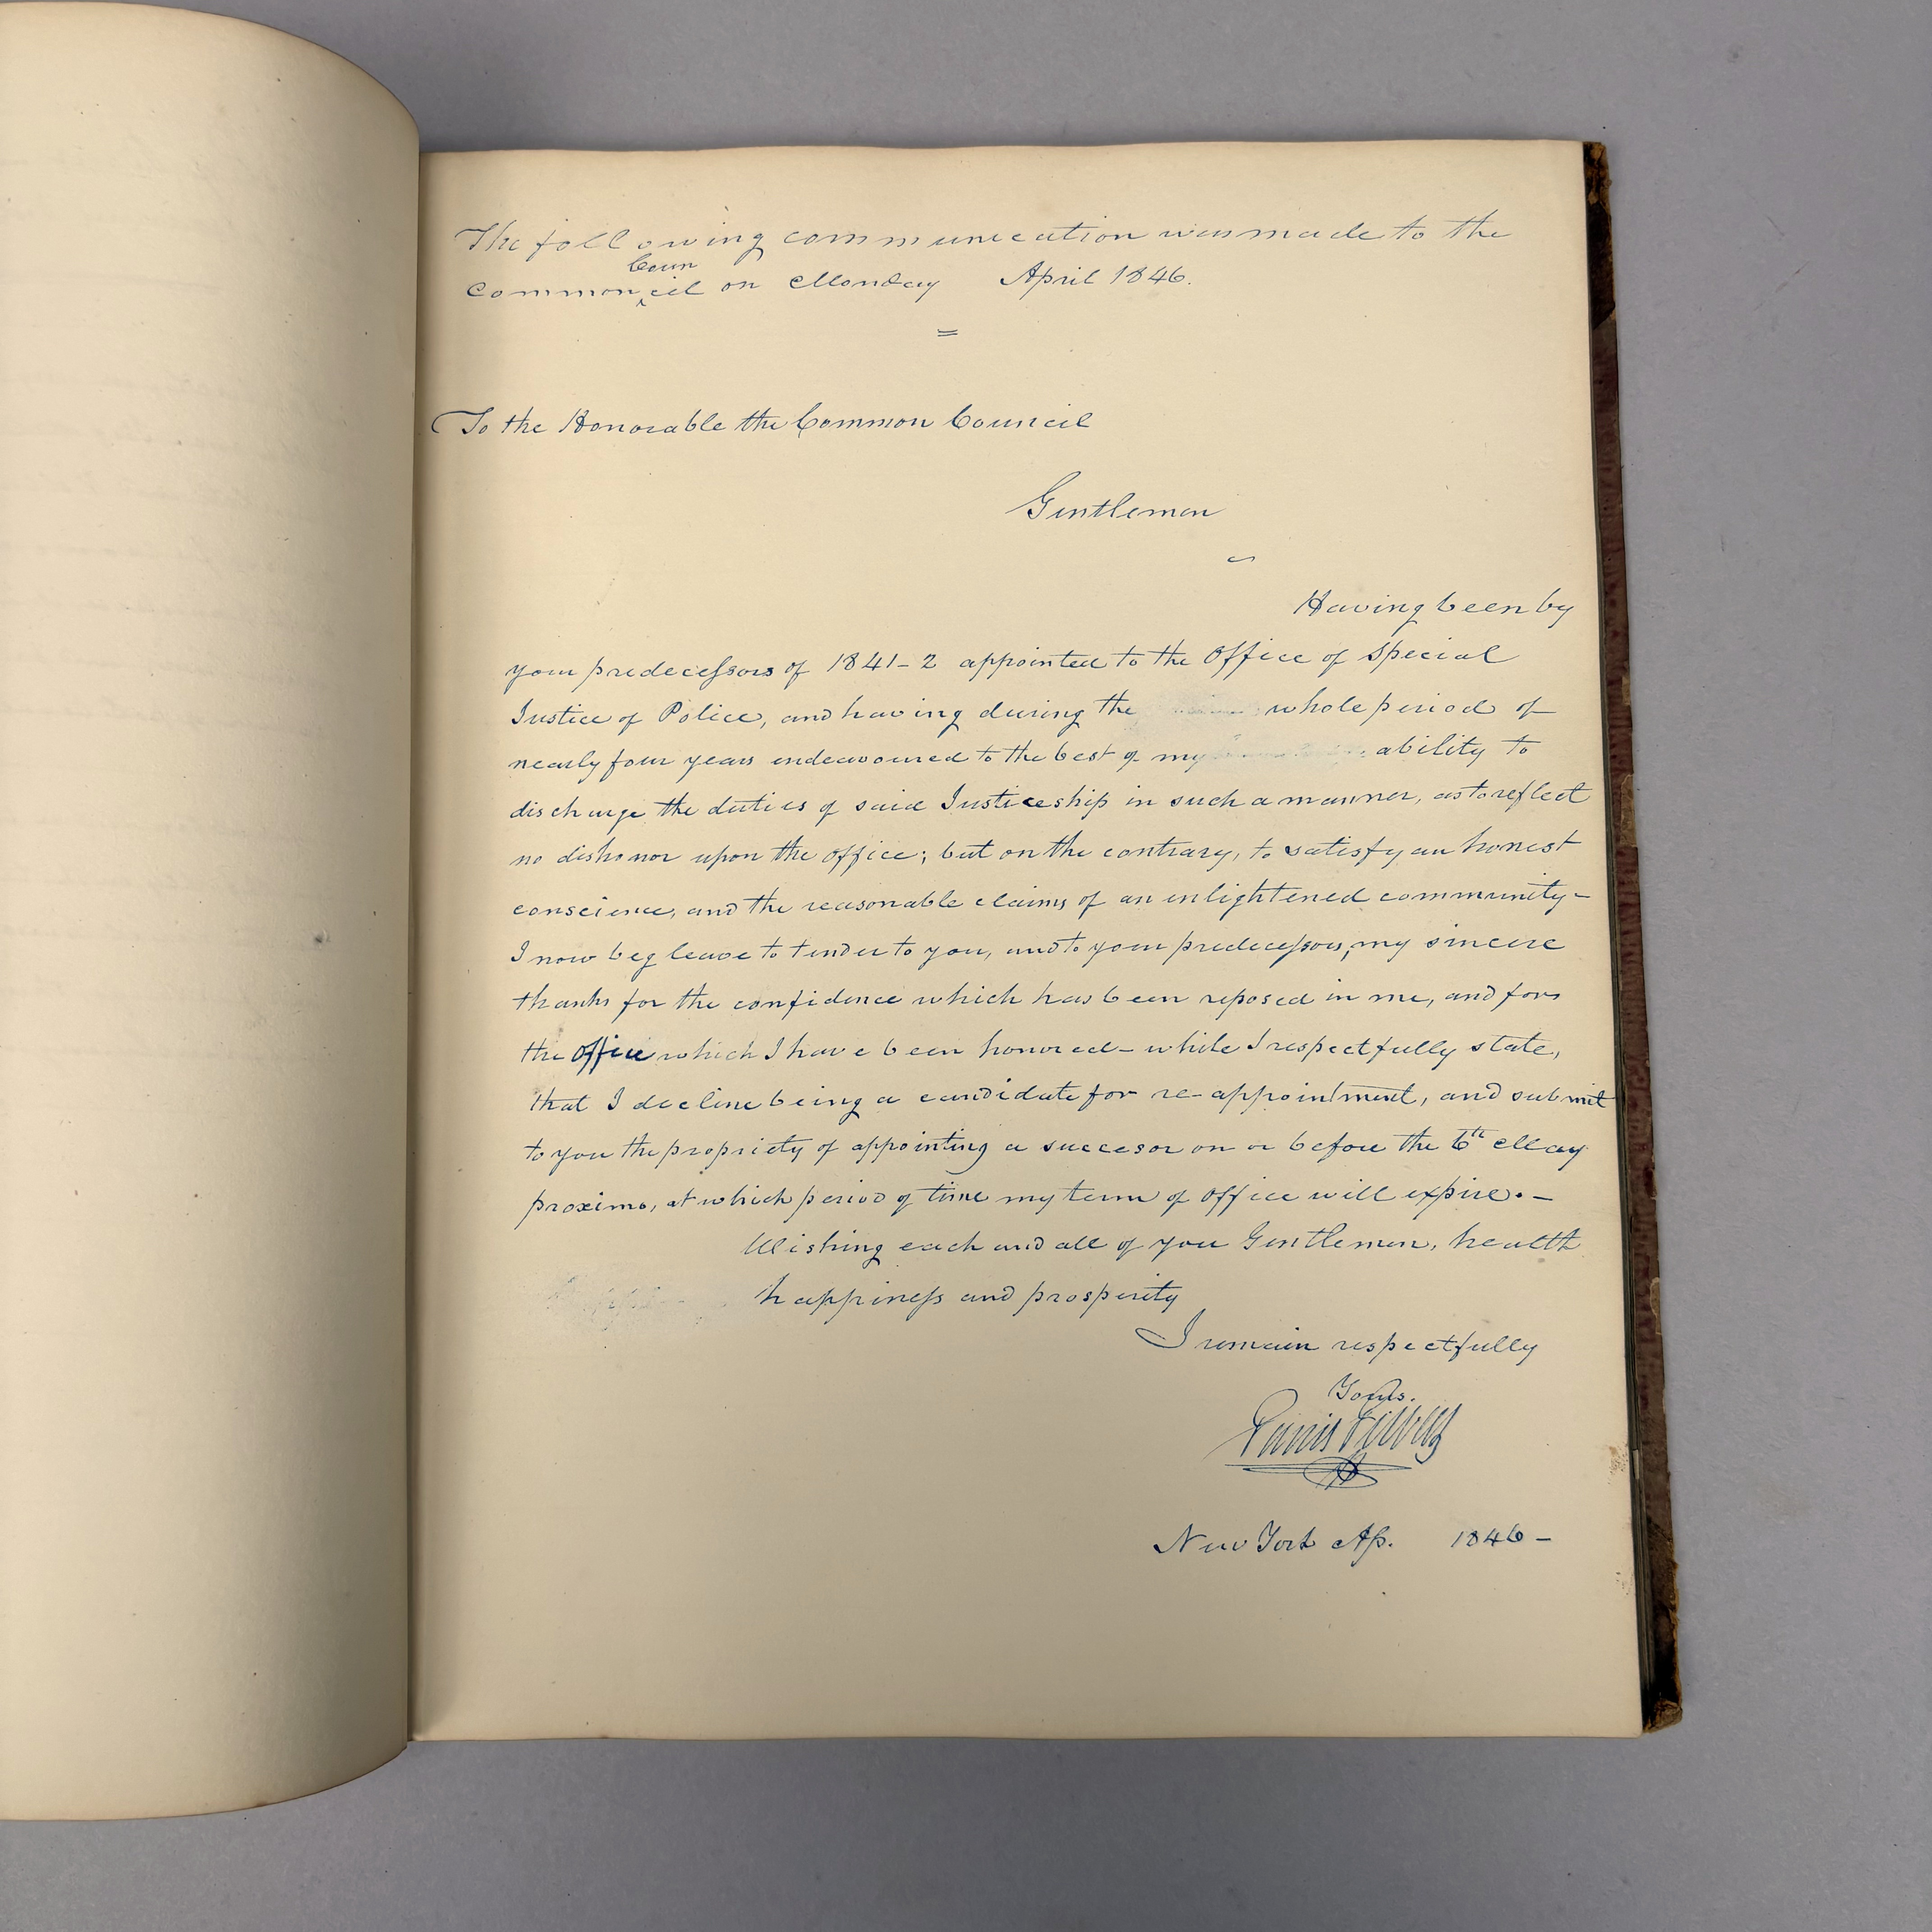 The following communication was made to the
Common Council on Monday April 1846.
=
To the Honorable the Common Council
Gentlemen
Having been by
your predecessors of 1841-2 appointed to the Office of Special
Justice of Police, and having during the whole period of
nearly four years endeavoured to the best of my ability to
discharge the duties of said Justiceship in such a manner, as to reflect
no dishonor upon the office; but on the contrary, to satisfy an honest
conscience, and the reasonable claims of an enlightened community-
I now beg leave to tender to you, and to your predecessors, my sincere
thanks for the confidence which has been reposed in me, and for
the office which I have been honored- while I respectfully state,
that I decline being a candidate for re-appointment, and submit
to you the propriety of appointing a succesor on or before the 6th May
proximo, at which period of time my term of office will expire.-
Wishing each and all of you Gentlemen, health
happiness and prosperity
I remain respectfully
Yours.
New York Ap. 1846-